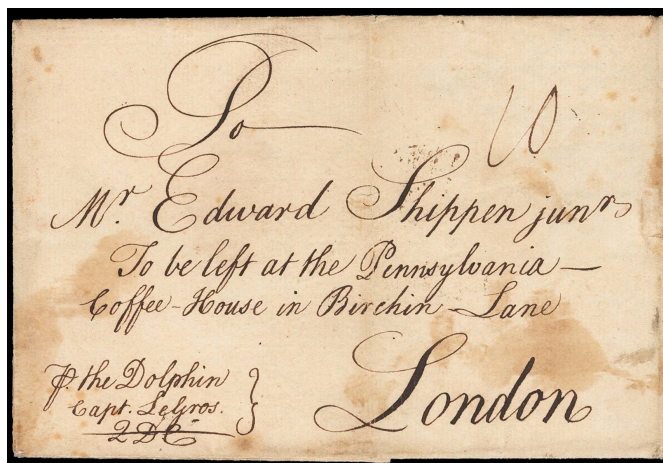 To
10
Mr. Edward Shippen junr
To be left at the Pennsylvania —
Coffee-House in Birchin-Lane
London
P. the Dolphin
Capt. LeGros.
2 D C